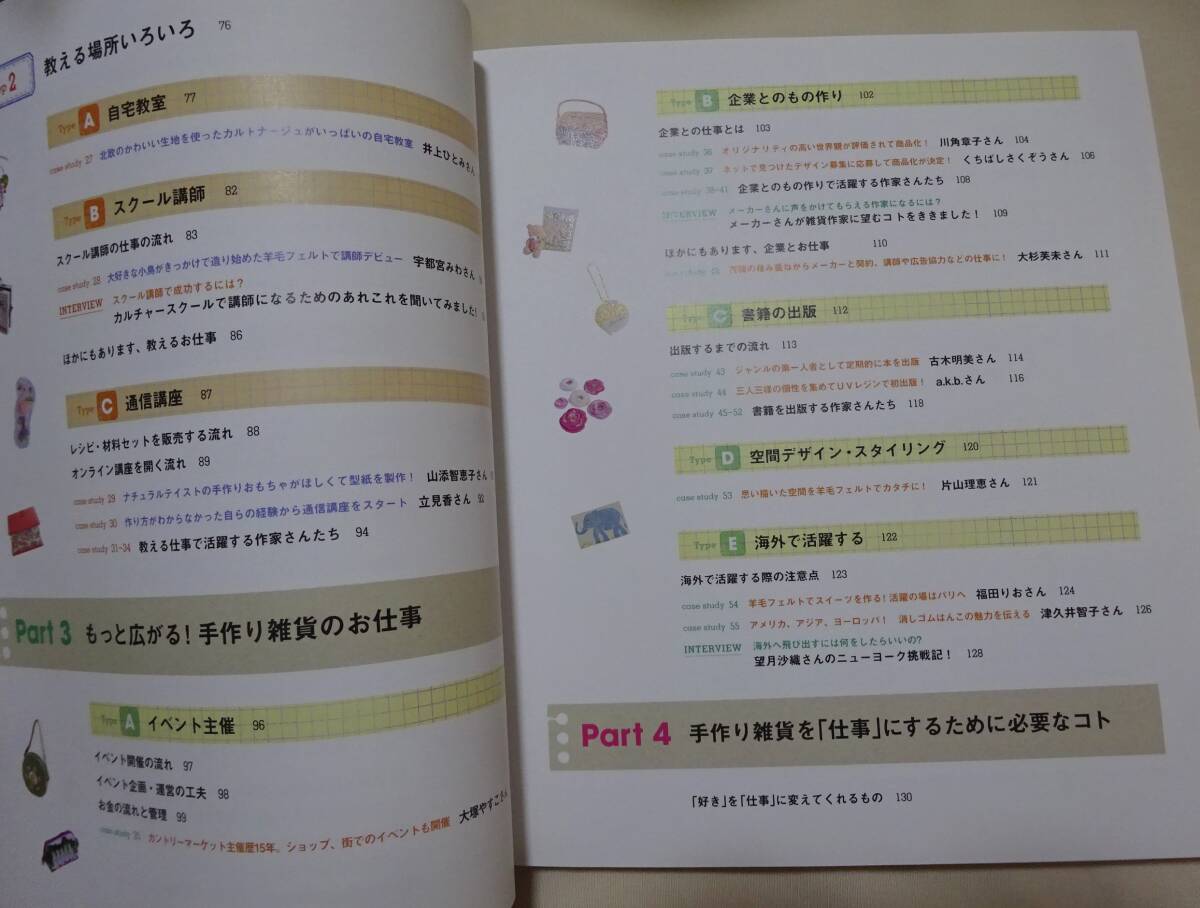 2
教える場所いろいろ 76
Type A 自宅教室 77
case study 27 北欧のかわいい生地を使ったカルトナージュがいっぱいの自宅教室 井上ひとみさん
Type B スクール講師 82
スクール講師の仕事の流れ 83
case study 28 大好きな小鳥がきっかけで造り始めた羊毛フェルトで講師デビュー 宇都宮みわさん
INTERVIEW スクール講師で成功するには?
カルチャースクールで講師になるためのあれこれを聞いてみました!
ほかにもあります、教えるお仕事 86
Type C 通信講座 87
レシピ・材料セットを販売する流れ 88
オンライン講座を開く流れ 89
case study 29 ナチュラルテイストの手作りおもちゃがほしくて型紙を製作! 山添智恵子さん
case study 30 作り方がわからなかった自らの経験から通信講座をスタート 立見香さん 92
case study 31-34 教える仕事で活躍する作家さんたち 94
Part 3 もっと広がる!手作り雑貨のお仕事
Type A イベント主催 96
イベント開催の流れ 97
イベント企画・運営の工夫 98
お金の流れと管理 99
case study 35 カントリーマーケット主催歴15年。ショップ、街でのイベントも開催 大塚やすこさん
Type B 企業とのもの作り 102
企業との仕事とは 103
case study 36 オリジナリティの高い世界観が評価されて商品化! 川角章子さん 104
case study 37 ネットで見つけたデザイン募集に応募して商品化が決定! くちばしさくぞうさん 106
case study 38-41 企業とのもの作りで活躍する作家さんたち 108
INTERVIEW メーカーさんに声をかけてもらえる作家になるには?
メーカーさんが雑貨作家に望むコトをききました! 109
ほかにもあります、企業とお仕事 110
case study 42 の積み重ねからメーカーと契約、講師や広告協力などの仕事に! 大杉芙未さん 111
Type C 書籍の出版 112
出版するまでの流れ 113
case study 43 ジャンルの第一人者として定期的に本を出版 古木明美さん 114
case study 44 三人三様の個性を集めてUVレジンで初出版! a.k.b.さん 116
case study 45-52 書籍を出版する作家さんたち 118
Type D 空間デザイン・スタイリング 120
case study 53 思い描いた空間を羊毛フェルトでカタチに! 片山理恵さん 121
Type E 海外で活躍する 122
海外で活躍する際の注意点 123
case study 54 羊毛フェルトでスイーツを作る!活躍の場はパリへ 福田りおさん 124
case study 55 アメリカ、アジア、ヨーロッパ! 消しゴムはんこの魅力を伝える 津久井智子さん 126
INTERVIEW 海外へ飛び出すには何をしたらいいの?
望月沙織さんのニューヨーク挑戦記! 128
Part 4 手作り雑貨を「仕事」にするために必要なコト
「好き」を「仕事」に変えてくれるもの 130